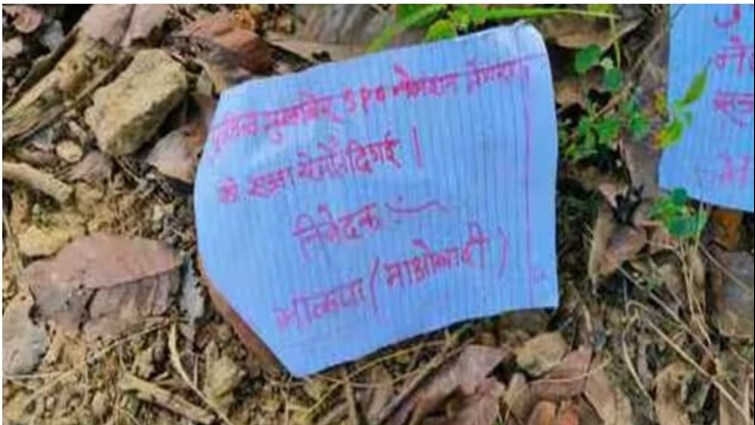 पुलिस मुखबिर SPO
को सजा ये मौत दि गई |
निवेदक :-
भाकपा (माओवादी)